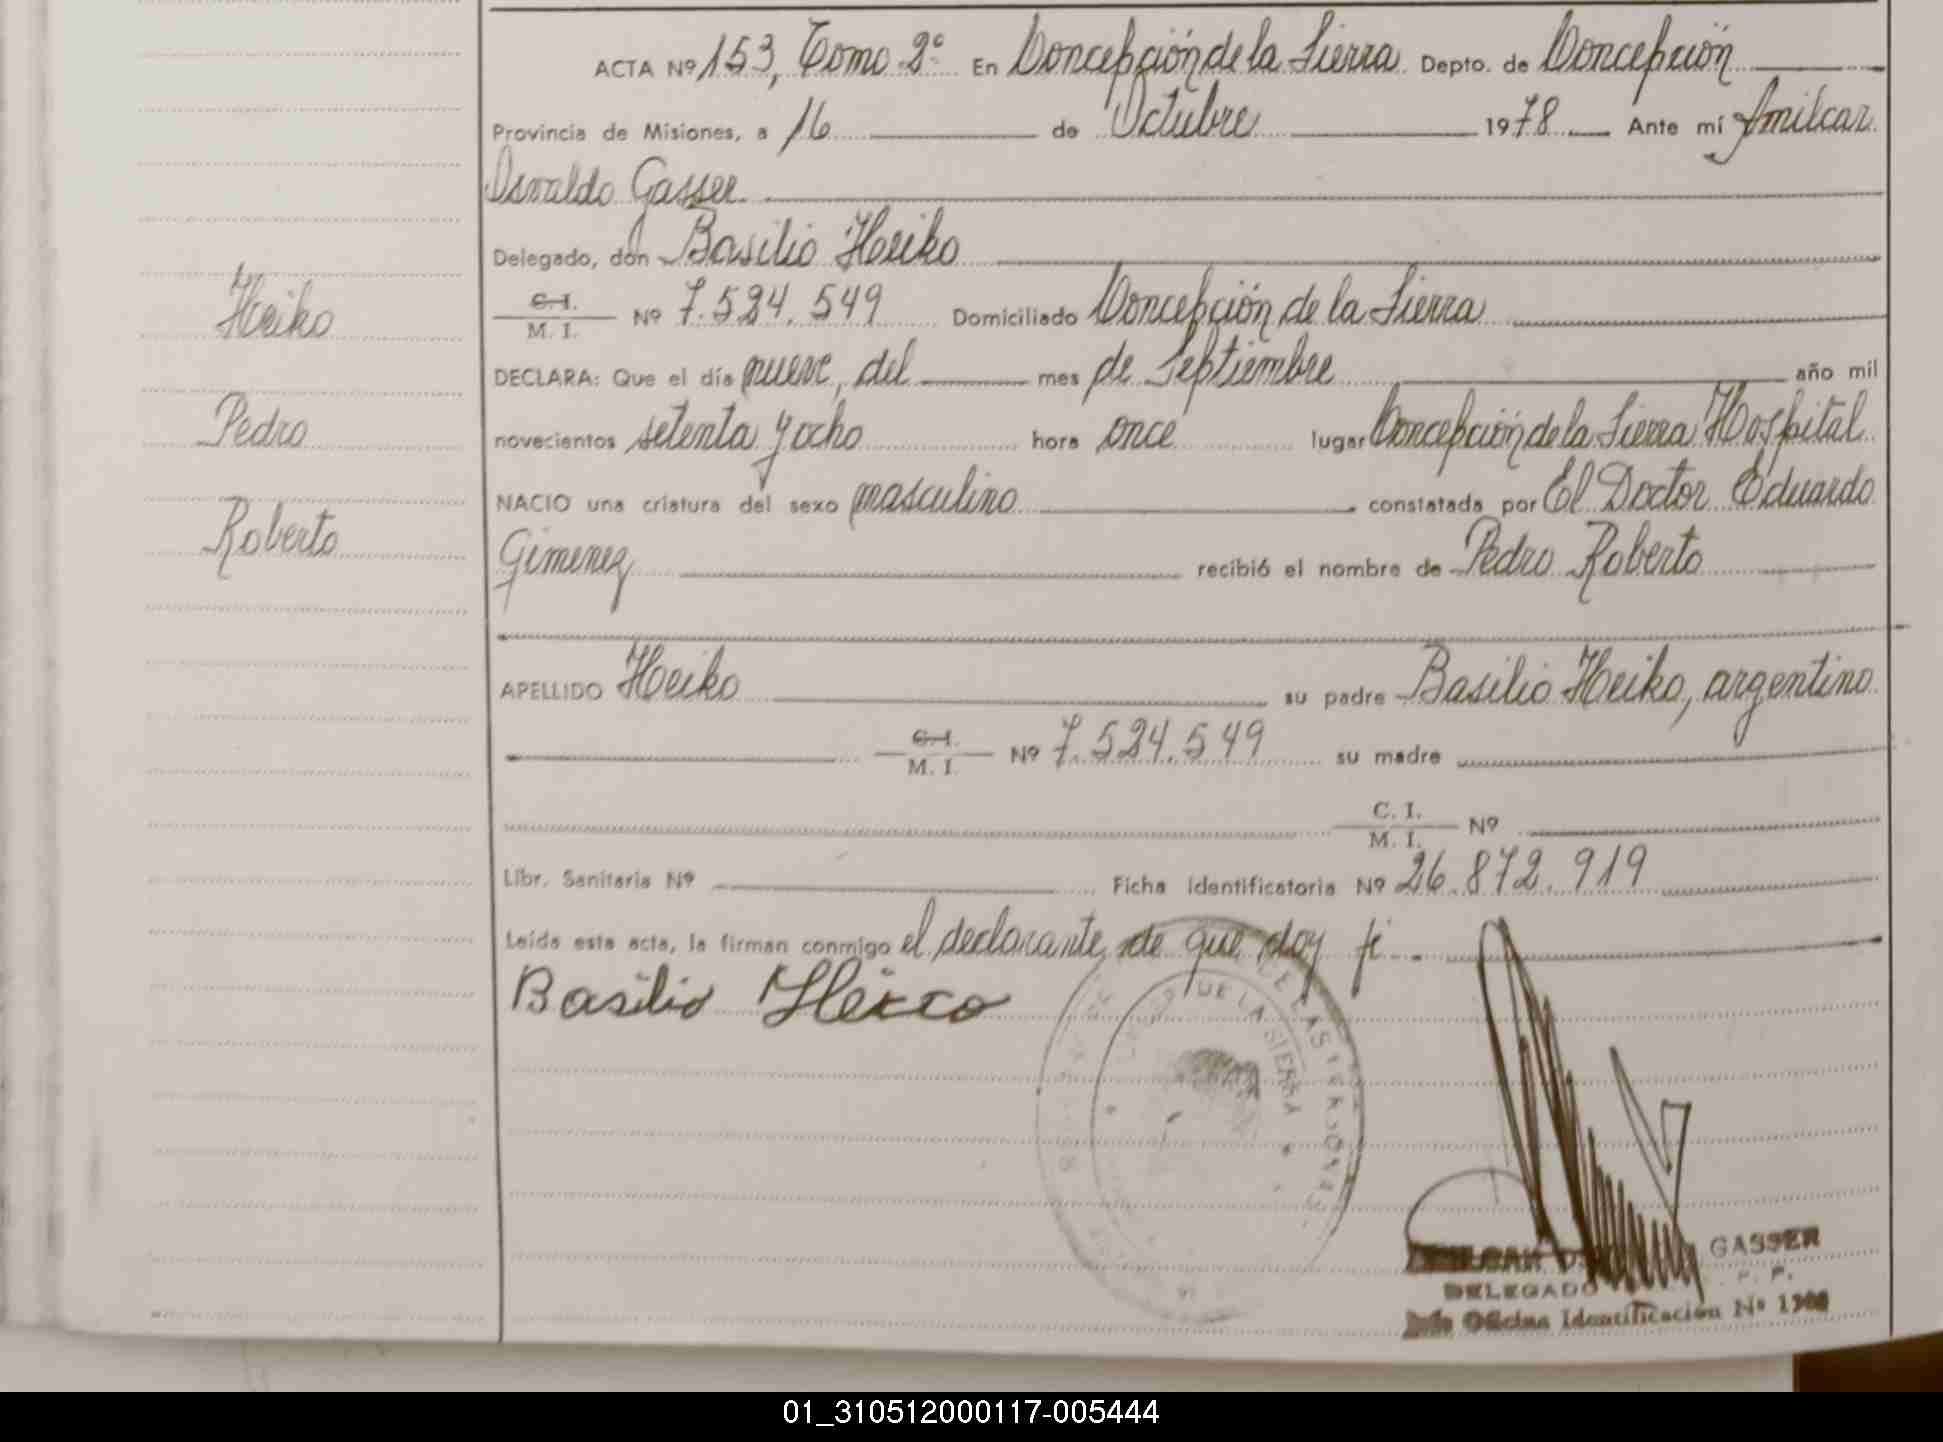 ACTA Nº 153, Tomo 2º En Concepción de la Sierra Depto. de Concepción
Provincia de Misiones, a 16 de Octubre 1978 Ante mí Amilcar
Osvaldo Gasser
Delegado, don Basilio Heiko
C. I.
M. I. Nº 7.524.549 Domiciliado Concepción de la Sierra
DECLARA: Que el día nueve, del mes de Septiembre año mil
novecientos setenta y ocho hora once lugar Concepción de la Sierra Hospital
NACIO una criatura del sexo masculino constatada por El Doctor Eduardo
Gimenez recibió el nombre de Pedro Roberto
APELLIDO Heiko su padre Basilio Heiko, argentino
C. I.
M. I. Nº 7.524.549 su madre
C. I.
M. I. Nº
Libr. Sanitaria Nº Ficha Identificatoria Nº 26.872.919
Leída esta acta, la firman conmigo el declarante, de que doy fé
Basilio Heico
Heiko
Pedro
Roberto
DE LA SIERRA
DE LAS PERSONAS
GASSER
DELEGADO
Jefe Oficina Identificación Nº
01_310512000117-005444